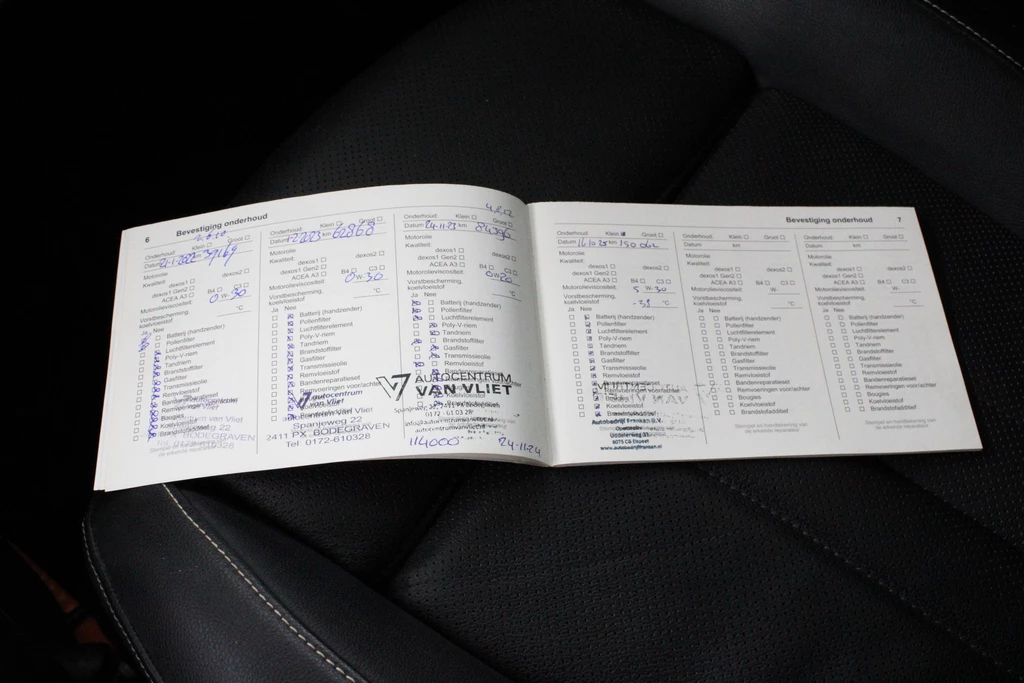 6 Bevestiging onderhoud
Onderhoud: Klein Groot
Datum 21-1-2022 km 39169
Motorolie:
Kwaliteit:
dexos1 dexos2
dexos1 Gen2
ACEA A3 B4 C3
Motorolieviscositeit:
0 W- 30
Vorstbescherming,
koelvloeistof °C
Ja Nee
Batterij (handzender)
Pollenfilter
Luchtfilterelement
Poly-V-riem
Tandriem
Brandstoffilter
Gasfilter
Transmissieolie
Remvloeistof
Bandenreparatieset
Remvoeringen voor/achter
Bougies
Koelvloeistof
BODEGRAVEN
Onderhoud: Klein Groot
Datum km 62868
Motorolie:
Kwaliteit:
dexos1 dexos2
dexos1 Gen2
ACEA A3 B4 C3
Motorolieviscositeit:
0 W- 30
Vorstbescherming,
koelvloeistof °C
Ja Nee
Batterij (handzender)
Pollenfilter
Luchtfilterelement
Poly-V-riem
Tandriem
Brandstoffilter
Gasfilter
Transmissieolie
Remvloeistof
Bandenreparatieset
autocentrum
van Vliet
Spanjeweg 22
2411 PX BODEGRAVEN
Tel. 0172-610328
Onderhoud: Klein Groot
Datum 24-11-23 km 84396
Motorolie:
Kwaliteit:
dexos1 dexos2
dexos1 Gen2
ACEA A3 B4 C3
Motorolieviscositeit:
0 W- 20
Vorstbescherming,
koelvloeistof °C
Ja Nee
Batterij (handzender)
Pollenfilter
Luchtfilterelement
Poly-V-riem
Tandriem
Brandstoffilter
Gasfilter
Transmissieolie
Remvloeistof
V7 AUTOCENTRUM
VAN VLIET
114000 24-11-24
Bevestiging onderhoud 7
Onderhoud: Klein Groot
Datum 16-10-25 km
Motorolie:
Kwaliteit:
dexos1 dexos2
dexos1 Gen2
ACEA A3 B4 C3
Motorolieviscositeit:
5 W- 30
Vorstbescherming,
koelvloeistof -38 °C
Ja Nee
Batterij (handzender)
Pollenfilter
Luchtfilterelement
Poly-V-riem
Tandriem
Brandstoffilter
Gasfilter
Transmissieolie
Remvloeistof
Bandenreparatieset
Remvoeringen voor/achter
Bougies
Koelvloeistof
Brandstofadditief
Autobedrijf Franssen B.V.
6075 CB
Onderhoud: Klein Groot
Datum km
Motorolie:
Kwaliteit:
dexos1 dexos2
dexos1 Gen2
ACEA A3 B4 C3
Motorolieviscositeit:
W-
Vorstbescherming,
koelvloeistof °C
Ja Nee
Batterij (handzender)
Pollenfilter
Luchtfilterelement
Poly-V-riem
Tandriem
Brandstoffilter
Gasfilter
Transmissieolie
Remvloeistof
Bandenreparatieset
Remvoeringen voor/achter
Bougies
Koelvloeistof
Brandstofadditief
Stempel en handtekening van
de erkende reparateur
Onderhoud: Klein Groot
Datum km
Motorolie:
Kwaliteit:
dexos1 dexos2
dexos1 Gen2
ACEA A3 B4 C3
Motorolieviscositeit:
W-
Vorstbescherming,
koelvloeistof °C
Ja Nee
Batterij (handzender)
Pollenfilter
Luchtfilterelement
Poly-V-riem
Tandriem
Brandstoffilter
Gasfilter
Transmissieolie
Remvloeistof
Bandenreparatieset
Remvoeringen voor/achter
Bougies
Koelvloeistof
Brandstofadditief
Stempel en handtekening van
de erkende reparateur